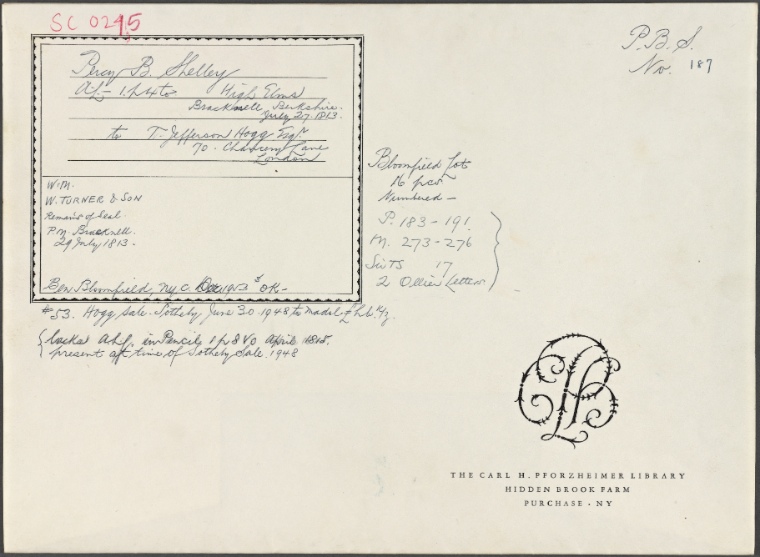 SC 0215
P.B.S.
No. 187
Percy B. Shelley
High Elms
Bracknell, Berkshire.
July 27. 1813.
to T. Jefferson Hogg Esqr
70. Chancery Lane
London
With
W. TURNER & SON
Remains of Seal.
P.M. Bracknell.
29 July 1813.
Ben Bloomfield, NYC. Dec 1953 OK-
Bloomfield Lot
16 pcs
Numbered -
P. 183-191.
M. 273-276
17
2 Ollier Letters
#53. Hogg Sale. Sotheby June 30. 1948 to
lacks in Pencil, 1 p 8vo April 1815.
present at time of Sotheby Sale. 1948
THE CARL H. PFORZHEIMER LIBRARY
HIDDEN BROOK FARM
PURCHASE · NY